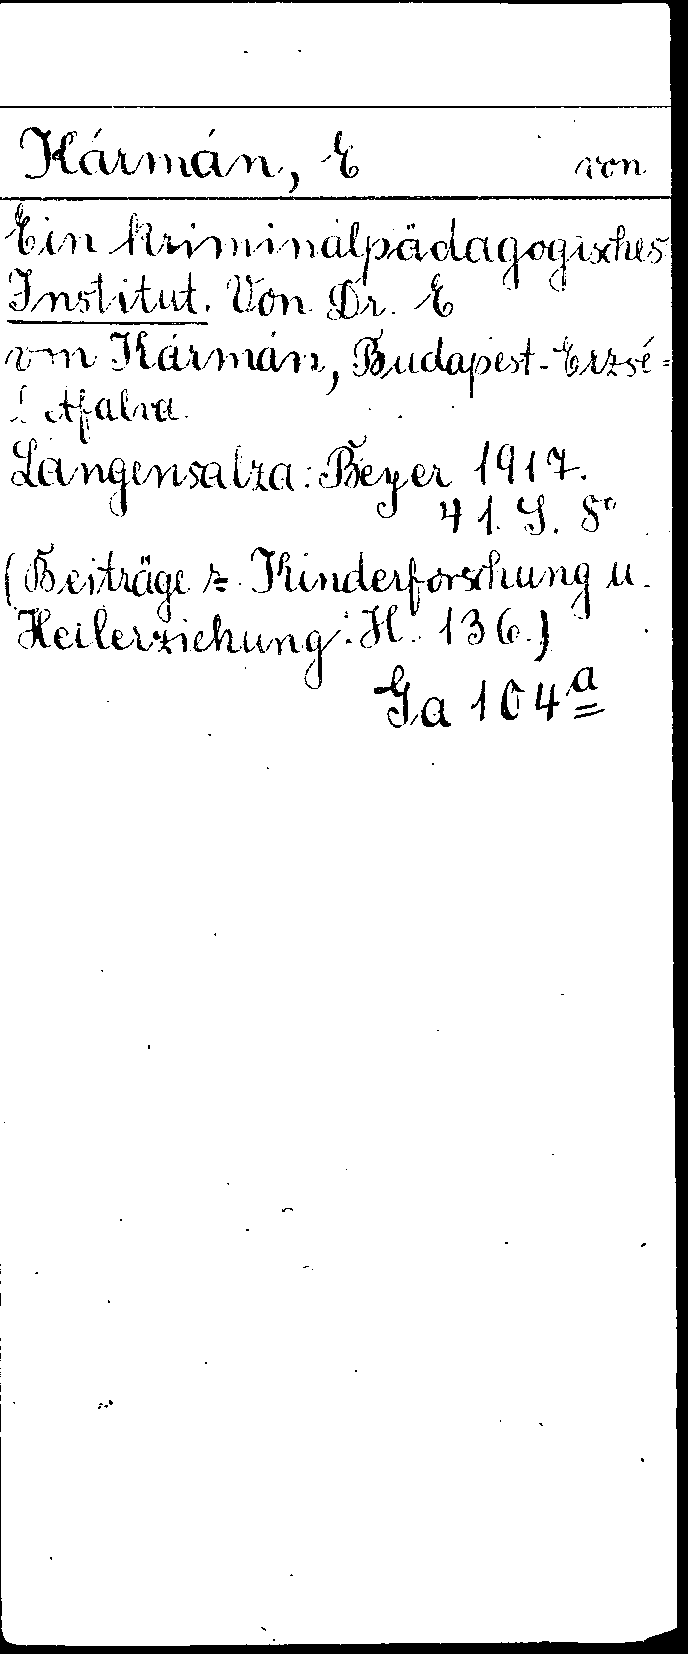 Kármán, E von
Ein kriminalpädagogisches
Institut. Von Dr. E
von Kármán, Budapest-Erzsé=
falva.
Langensalza: Beyer 1917.
41. S. 8°
(Beiträge z. Kinderforschung u.
Heilerziehung: H. 136.)
Ga 104ª